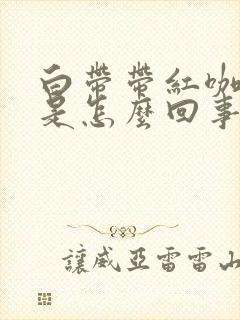 白帶帶紅咖
是怎麼回事
讓威亞雷雷山